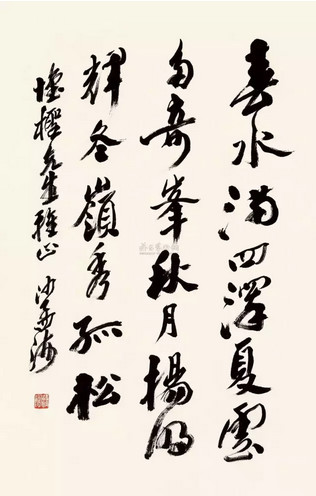 春水滿四澤夏雲
多奇峯秋月揚明
輝冬嶺秀孤松
先生雅正 沙孟海